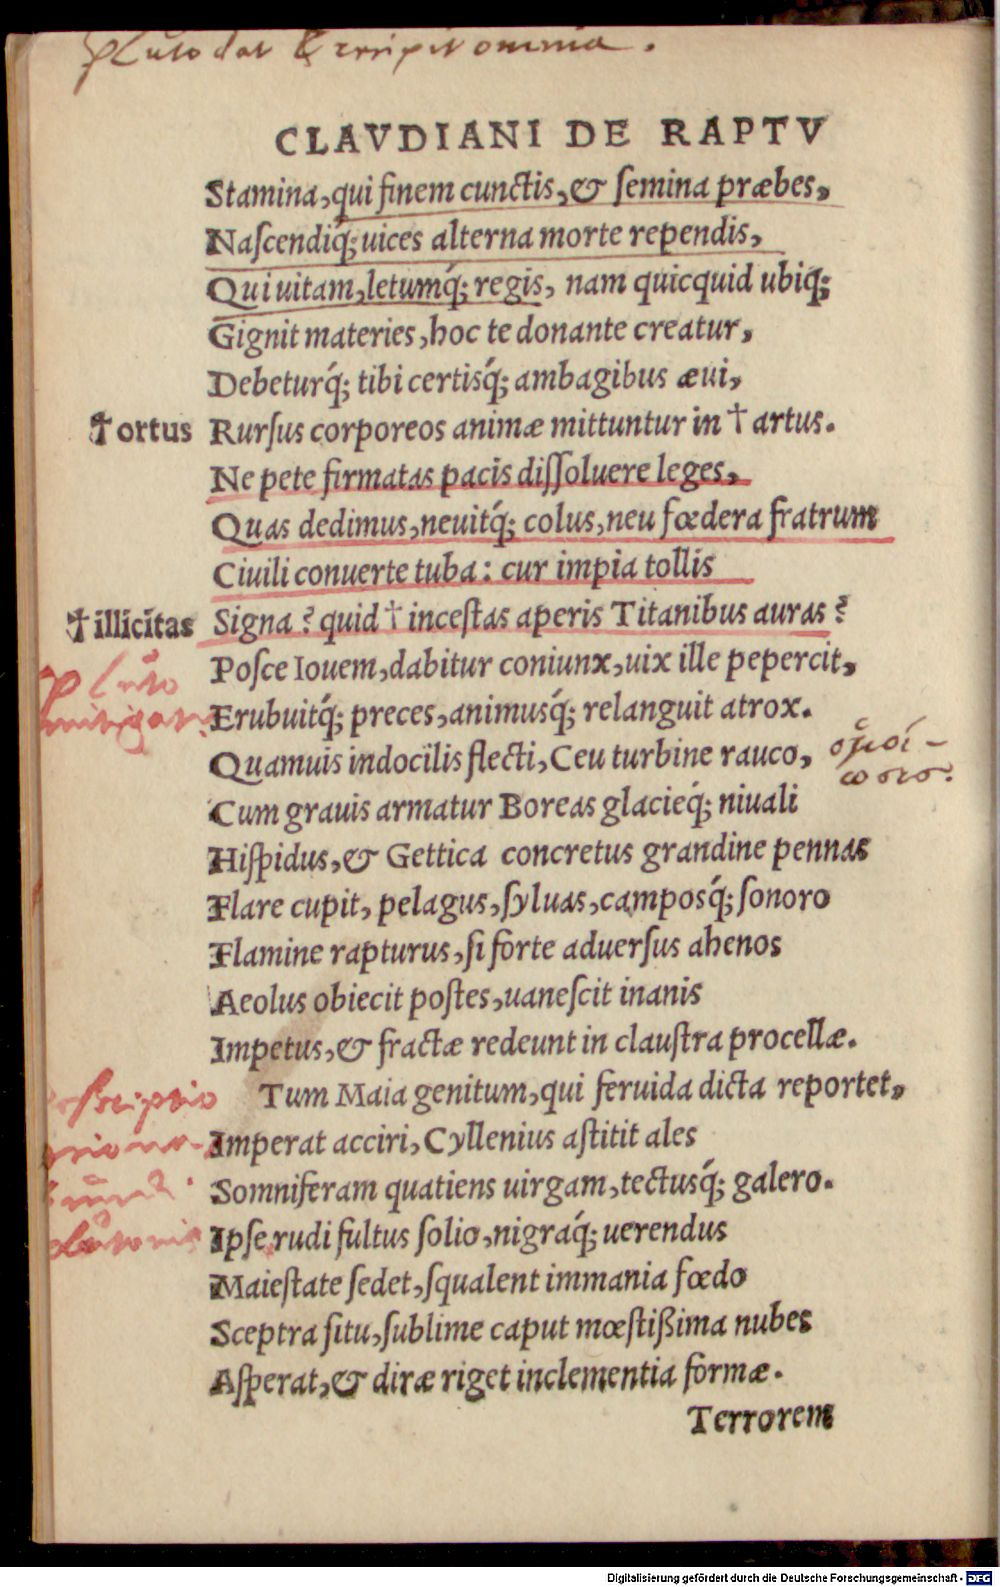 Pluto dat & eripit omnia.
CLAVDIANI DE RAPTV
Stamina, qui finem cunctis, & ſemina præbes,
Naſcendiq́; uices alterna morte rependis,
Qui uitam, letumq́; regis, nam quicquid ubiq́;
Gignit materies, hoc te donante creatur,
Debeturq́; tibi certisq́; ambagibus æui,
† ortus Rurſus corporeos animæ mittuntur in † artus.
Ne pete firmatas pacis diſſoluere leges,
Quas dedimus, neuitq́; colus, neu fœdera fratrum
Ciuili conuerte tuba: cur impia tollis
† illicitas Signa? quid † inceſtas aperis Titanibus auras?
Poſce Iouem, dabitur coniunx, uix ille pepercit,
Pluto
mitigatur
Erubuitq́; preces, animusq́; relanguit atrox.
Quamuis indocilis flecti, Ceu turbine rauco,
ὁμοί-
ωσισ.
Cum grauis armatur Boreas glacieq́; niuali
Hiſpidus, & Gettica concretus grandine pennas
Flare cupit, pelagus, ſyluas, camposq́; ſonoro
Flamine rapturus, ſi forte aduerſus ahenos
Aeolus obiecit poſtes, uaneſcit inanis
Impetus, & fractæ redeunt in clauſtra procellæ.
Tum Maia genitum, qui feruida dicta reportet,
Imperat acciri, Cyllenius aſtitit ales
Somniferam quatiens uirgam, tectusq́; galero.
Ipſe rudi fultus ſolio, nigraq́; uerendus
Maieſtate ſedet, ſqualent immania fœdo
Sceptra ſitu, ſublime caput mœſtißima nubes
Aſperat, & diræ riget inclementia formæ.
Terrorem
Digitalisierung gefördert durch die Deutsche Forschungsgemeinschaft - DFG